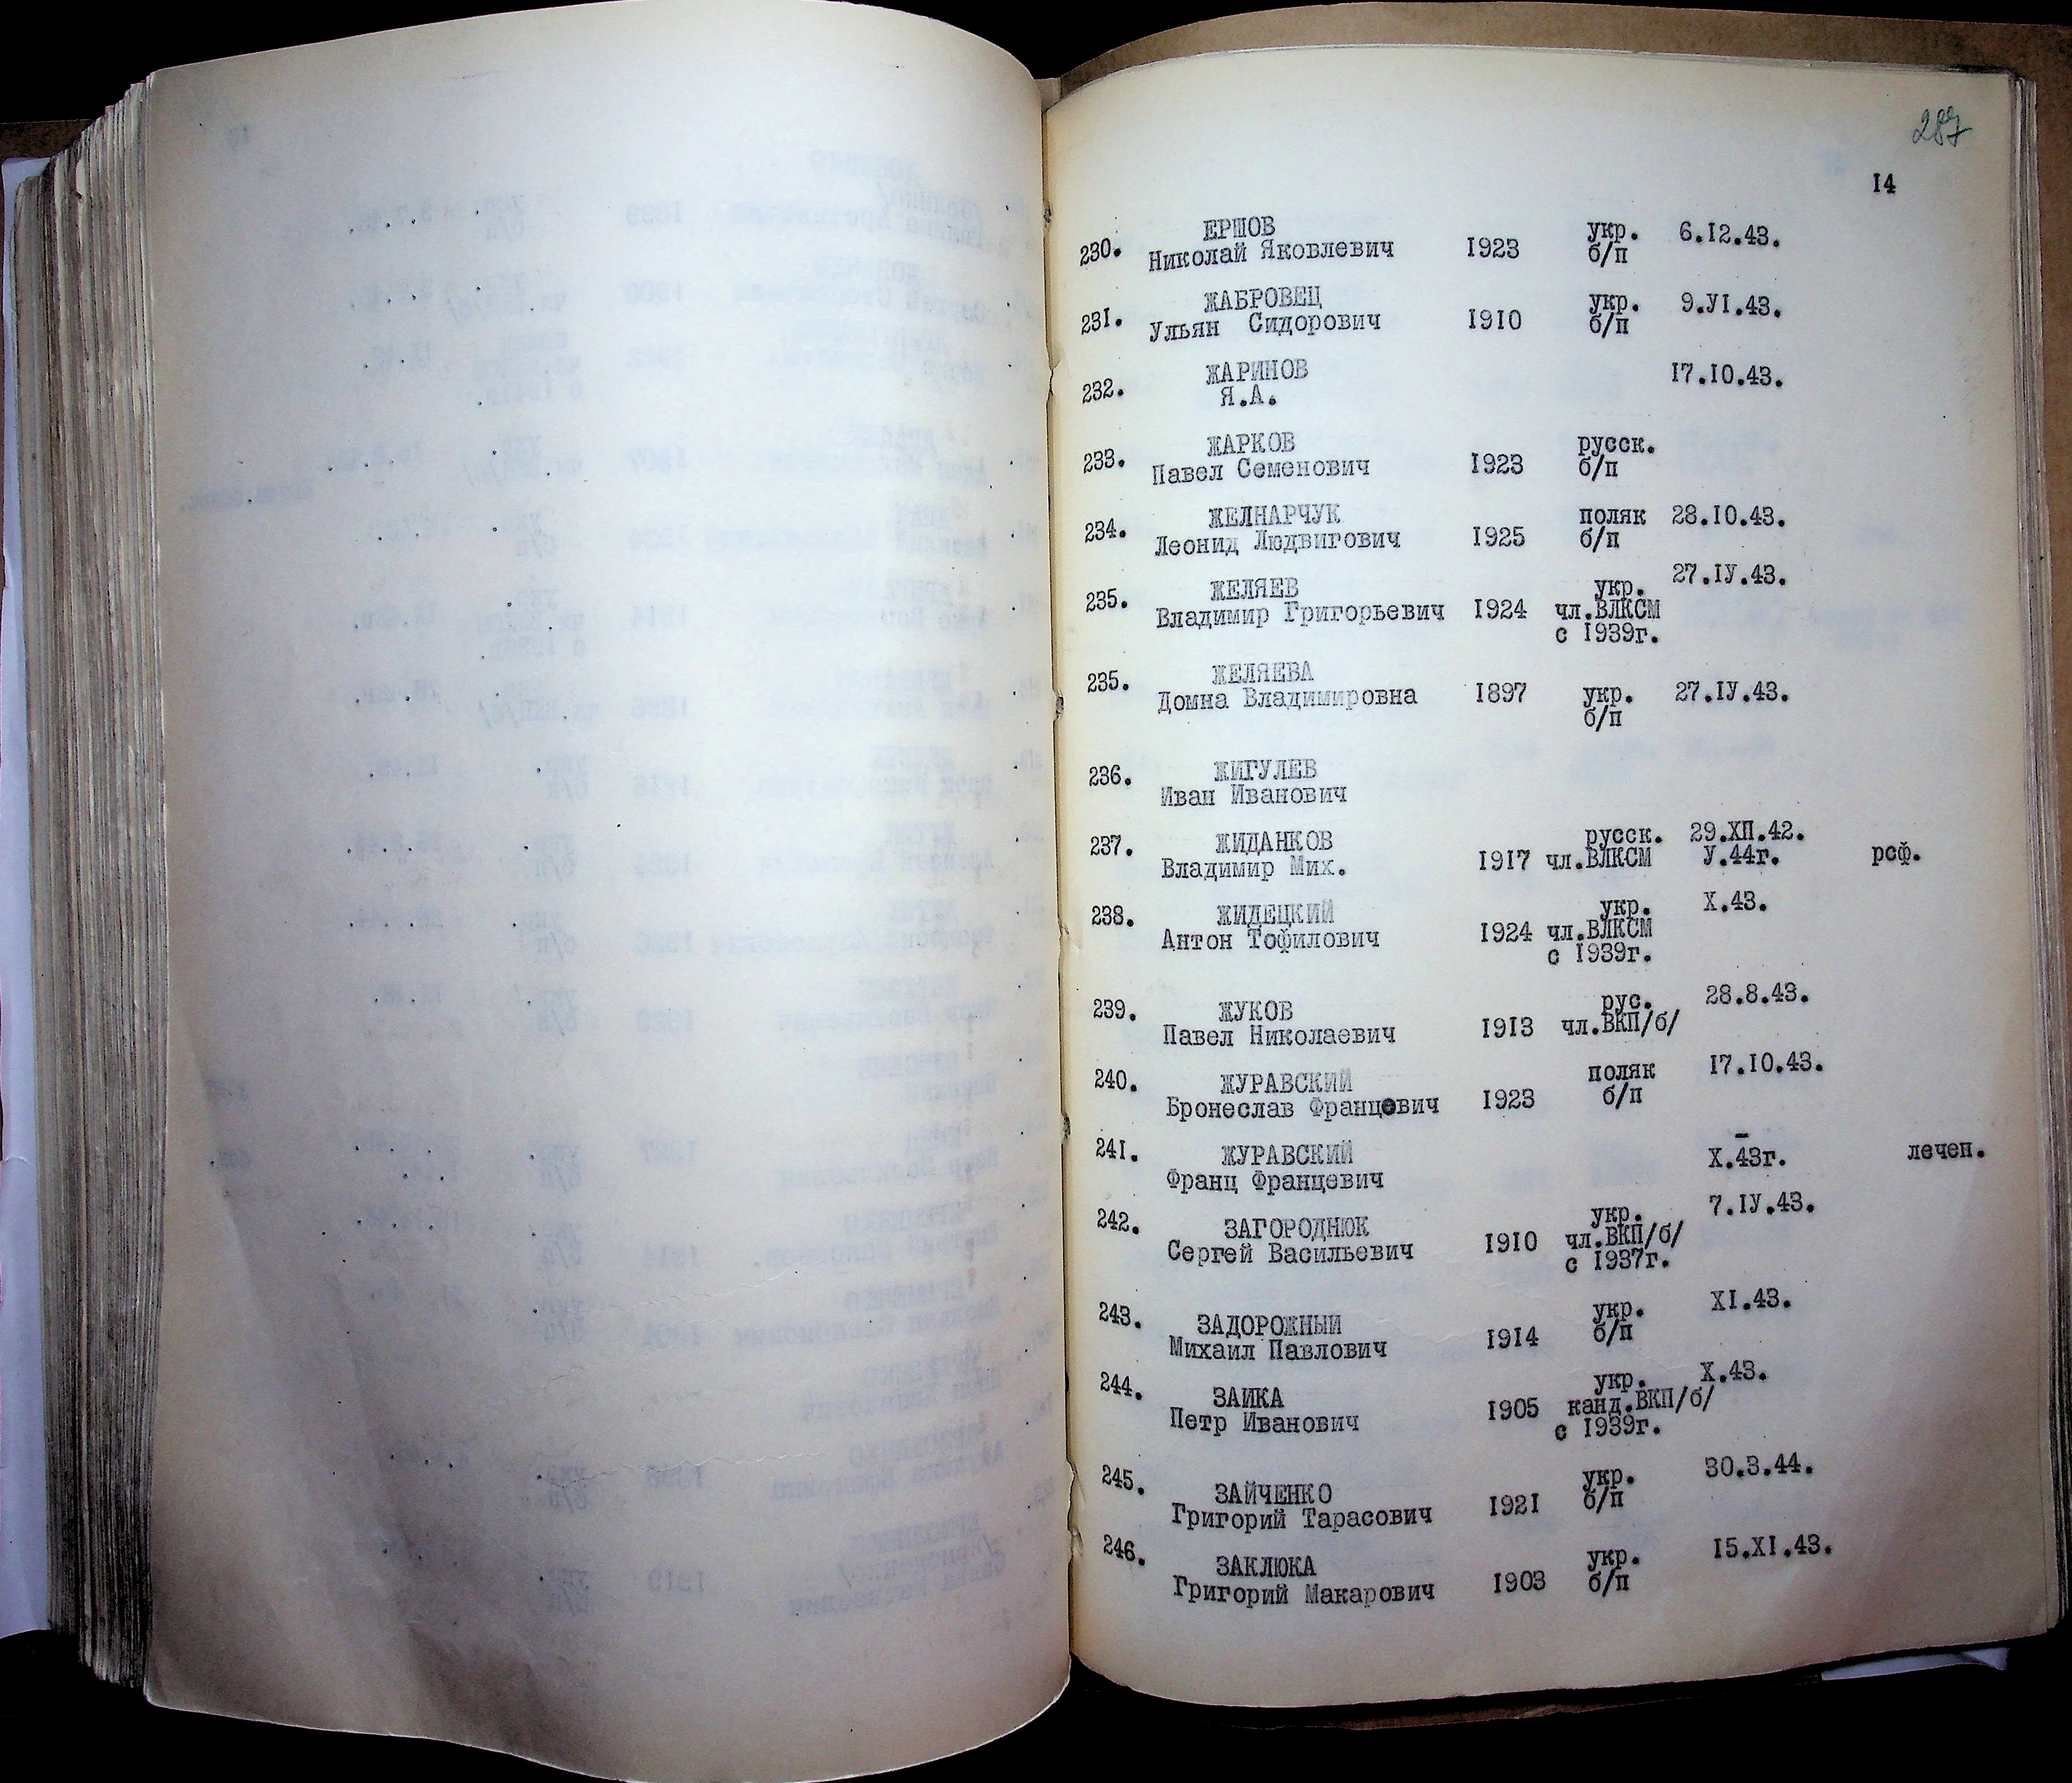 287
14
230. ЕРШОВ укр. 6.12.43.
Николай Яковлевич 1923 б/п
231. ЖАБРОВЕЦ укр. 9.УI.43.
Ульян Сидорович 1910 б/п
232. ЖАРИНОВ 17.10.43.
Я.А.
233. ЖАРКОВ русск.
Павел Семенович 1923 б/п
234. ЖЕЛНАРЧУК поляк 28.10.43.
Леонид Людвигович 1925 б/п
235. ЖЕЛЯЕВ укр. 27.IУ.43.
Владимир Григорьевич 1924 чл.ВЛКСМ
с 1939г.
235. ЖЕЛЯЕВА
Домна Владимировна 1897 укр. 27.IУ.43.
б/п
236. ЖИГУЛЕВ
Иван Иванович
237. ЖИДАНКОВ русск. 29.ХП.42.
Владимир Мих. 1917 чл.ВЛКСМ У.44г. рсф.
238. ЖИДЕЦКИЙ укр. Х.43.
Антон Тофилович 1924 чл.ВЛКСМ
с 1939г.
239. ЖУКОВ рус. 28.8.43.
Павел Николаевич 1913 чл.ВКП/б/
240. ЖУРАВСКИЙ поляк 17.10.43.
Бронеслав Францевич 1923 б/п
241. ЖУРАВСКИЙ Х.43г. лечен.
Франц Францевич
242. ЗАГОРОДНЮК укр. 7.IУ.43.
Сергей Васильевич 1910 чл.ВКП/б/
с 1937г.
243. ЗАДОРОЖНЫЙ укр. ХI.43.
Михаил Павлович 1914 б/п
244. ЗАИКА укр. Х.43.
Петр Иванович 1905 канд.ВКП/б/
с 1939г.
245. ЗАЙЧЕНКО укр. 30.3.44.
Григорий Тарасович 1921 б/п
246. ЗАКЛЮКА укр. 15.ХI.43.
Григорий Макарович 1903 б/п